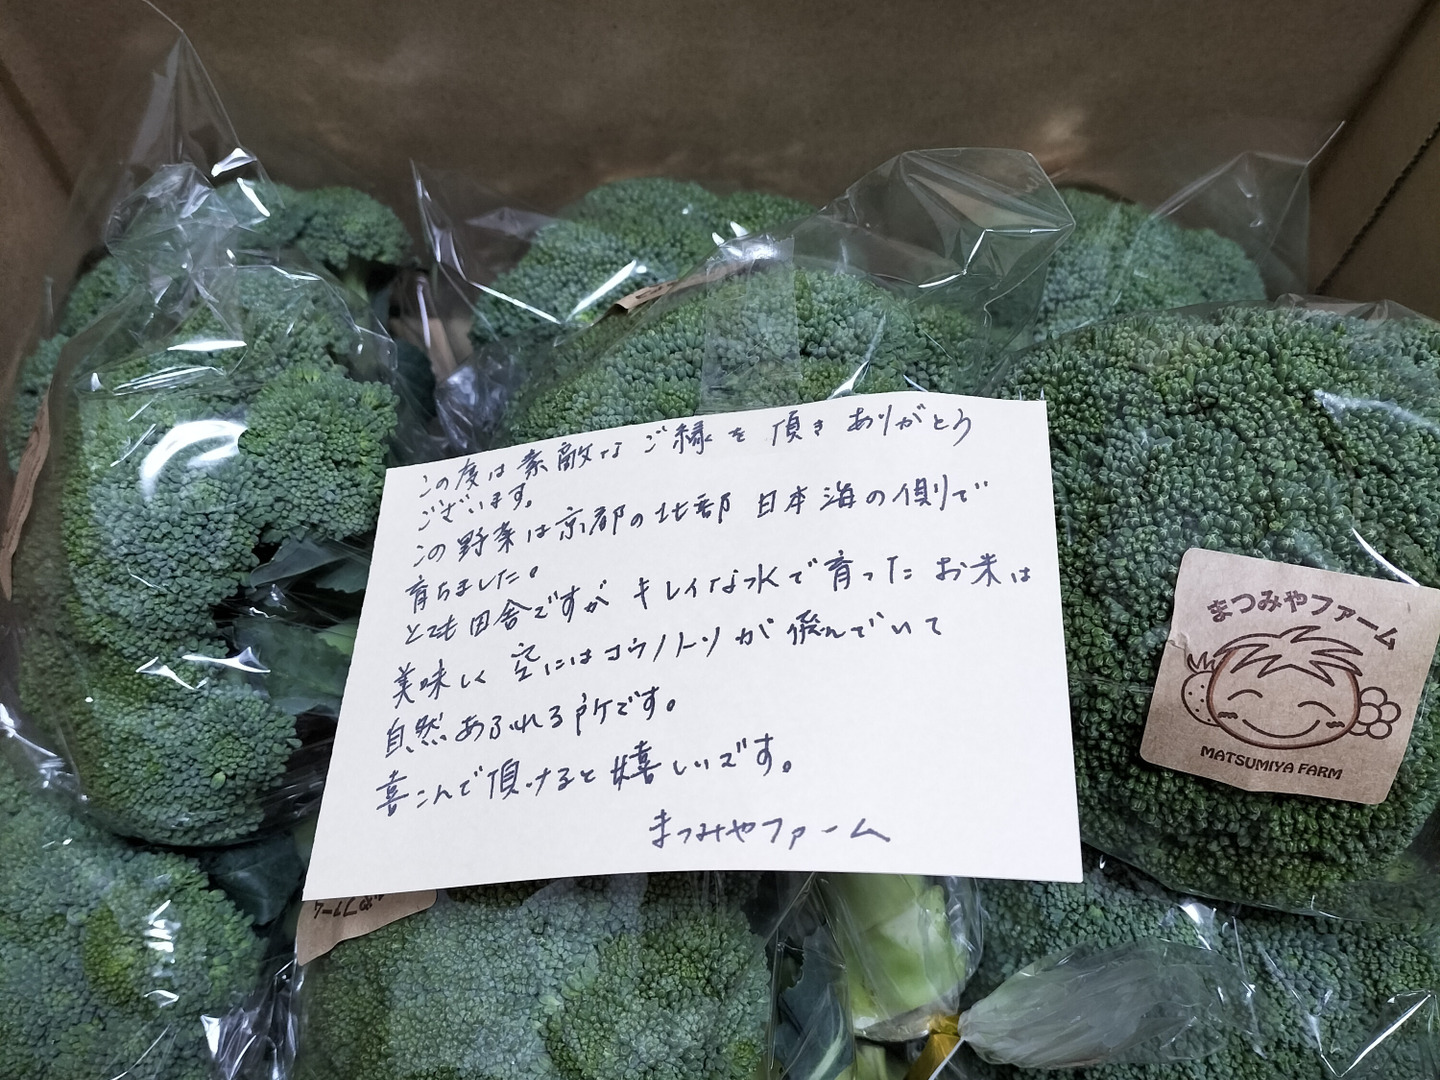 この度は素敵なご縁を頂きありがとう
ございます。
この野菜は京都の北部 日本海の側で
育ちました。
とても田舎ですが キレイな水で育ったお米は
美味しく 空にはコウノトリが飛んでいて
自然あふれる所です。
喜こんで頂けると嬉しいです。
まつみやファーム
まつみやファーム
MATSUMIYA FARM